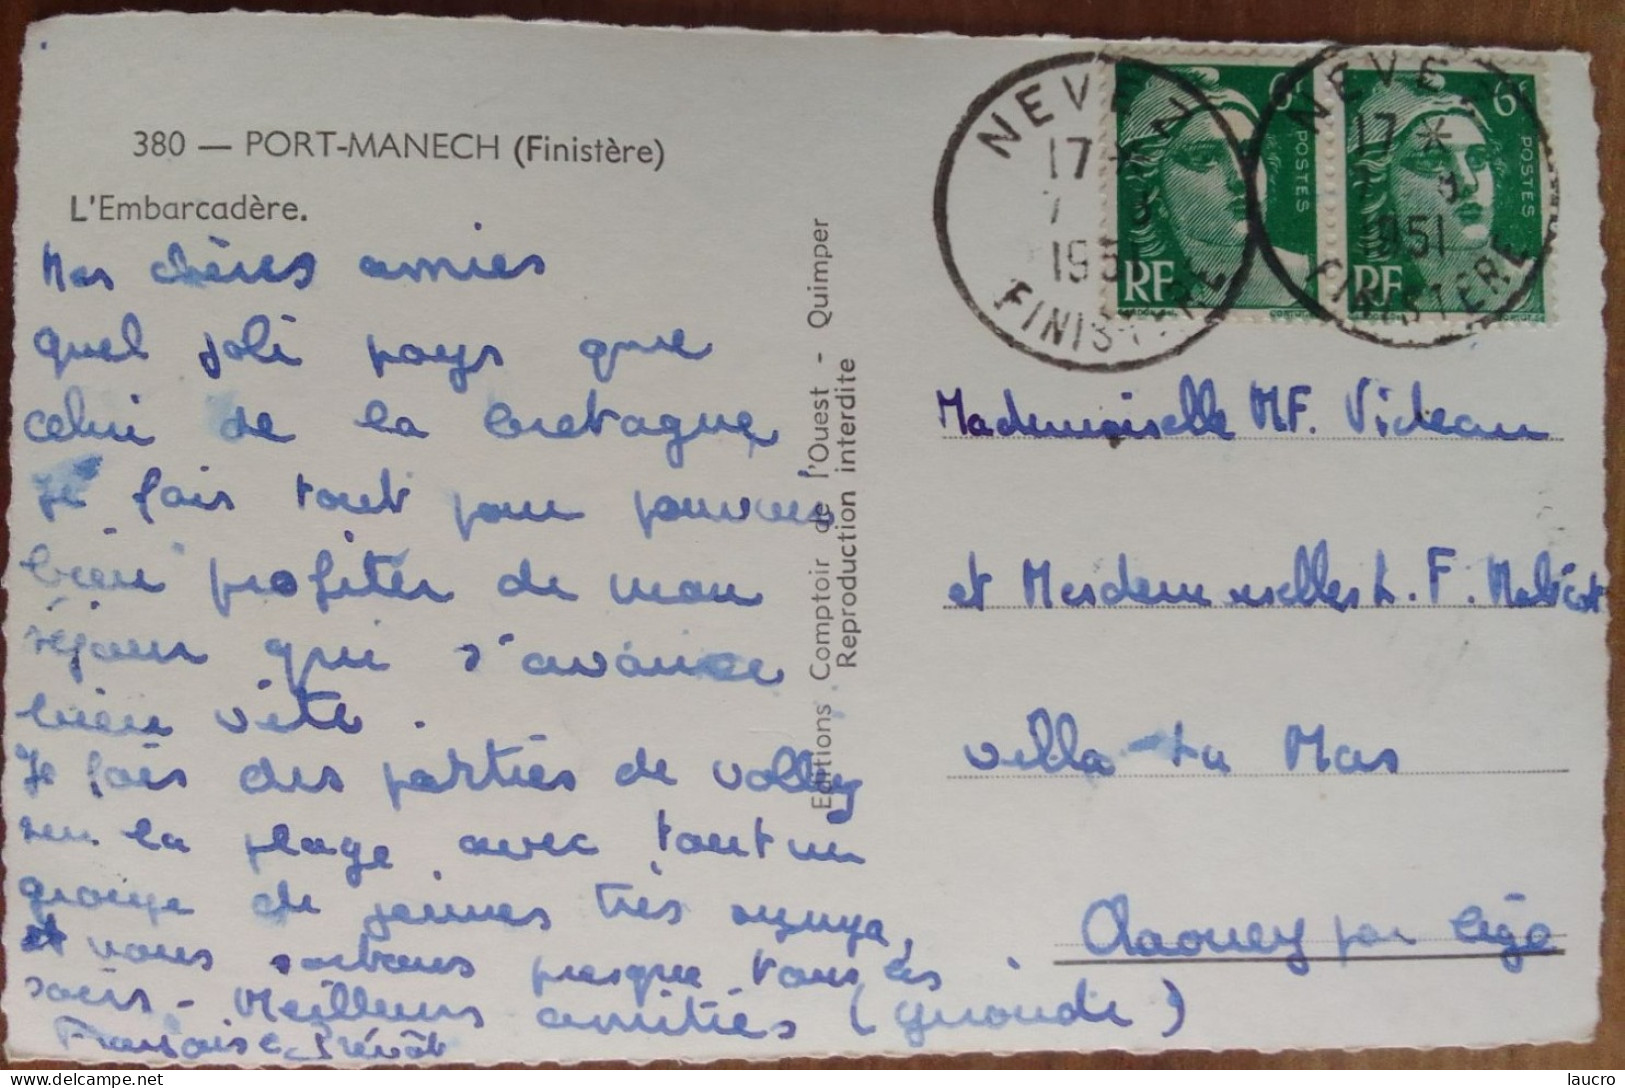 380 — PORT-MANECH (Finistère)
L'Embarcadère.
Mes chères amies
quel joli pays que
celui de la bretagne
Je fais tout pour pouvoir
bien profiter de mon
séjour qui s'avance
bien vite.
Je fais des parties de volley
sur la plage avec tout un
groupe de jeunes très sympa,
et nous sortons presque tous les
soirs - Meilleures amitiés
Françoise Prévôt
Editions Comptoir de l'Ouest - Quimper
Reproduction interdite
NEVEZ
17 *
7 9
1951
FINISTERE
6F
POSTES
RF
NEVEZ
17 *
7 9
1951
FINISTERE
6F
POSTES
RF
Mademoiselle MF. Videau
et Mesdemoiselles L. F. Malicot
villa Lu Mas
Claouey par Lège
(Gironde)
laucro